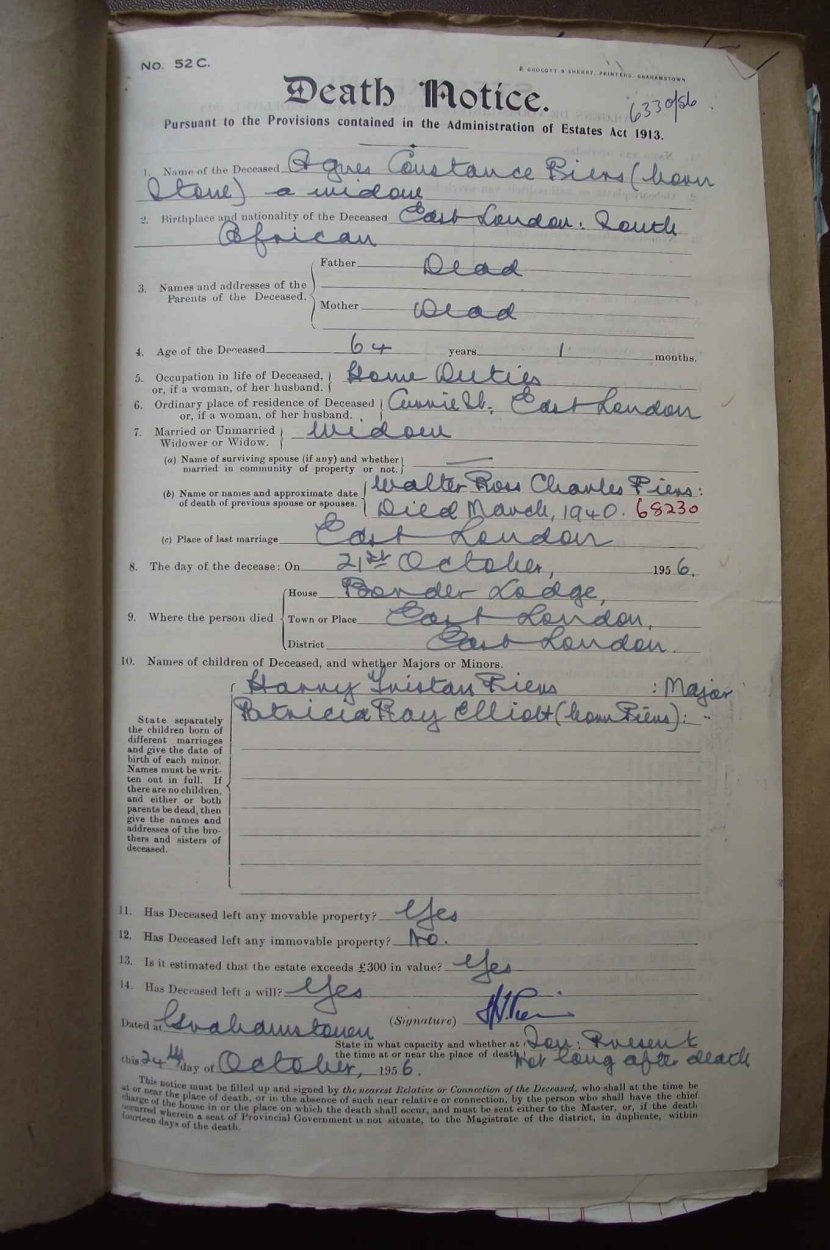 No. 52 C.
E CROCOTT & SHERRY, PRINTERS, GRAHAMSTOWN
Death Notice.
6330/56
Pursuant to the Provisions contained in the Administration of Estates Act 1913.
1. Name of the Deceased Agnes Constance Piers (born
Stone) a widow
2. Birthplace and nationality of the Deceased East London: South
African
3. Names and addresses of the Parents of the Deceased.
Father Dead
Mother Dead
4. Age of the Deceased 64 years 1 months.
5. Occupation in life of Deceased, or, if a woman, of her husband. Home Duties
6. Ordinary place of residence of Deceased or, if a woman, of her husband. St. East London
7. Married or Unmarried Widower or Widow. Widow
(a) Name of surviving spouse (if any) and whether married in community of property or not. —
(b) Name or names and approximate date of death of previous spouse or spouses. Walter Ross Charles Piers:
Died March, 1940. 68230
(c) Place of last marriage East London
8. The day of the decease: On 21st October, 1956.
9. Where the person died
House Border Lodge,
Town or Place East London,
District East London.
10. Names of children of Deceased, and whether Majors or Minors.
Harry Tristan Piers : Major
Patricia Ray Elliott (born Piers): "
State separately
the children born of
different marriages
and give the date of
birth of each minor.
Names must be writ-
ten out in full. If
there are no children,
and either or both
parents be dead, then
give the names and
addresses of the bro-
thers and sisters of
deceased.
11. Has Deceased left any movable property? Yes
12. Has Deceased left any immovable property? No.
13. Is it estimated that the estate exceeds £300 in value? Yes
14. Has Deceased left a will? Yes
Dated at Grahamstown (Signature)
State in what capacity and whether at the time at or near the place of death. Son: Present
not long after death
this 24th day of October, 1956.
This notice must be filled up and signed by the nearest Relative or Connection of the Deceased, who shall at the time be
at or near the place of death, or in the absence of such near relative or connection, by the person who shall have the chief
charge of the house in or the place on which the death shall occur, and must be sent either to the Master, or, if the death
occurred wherein a seat of Provincial Government is not situate, to the Magistrate of the district, in duplicate, within
fourteen days of the death.